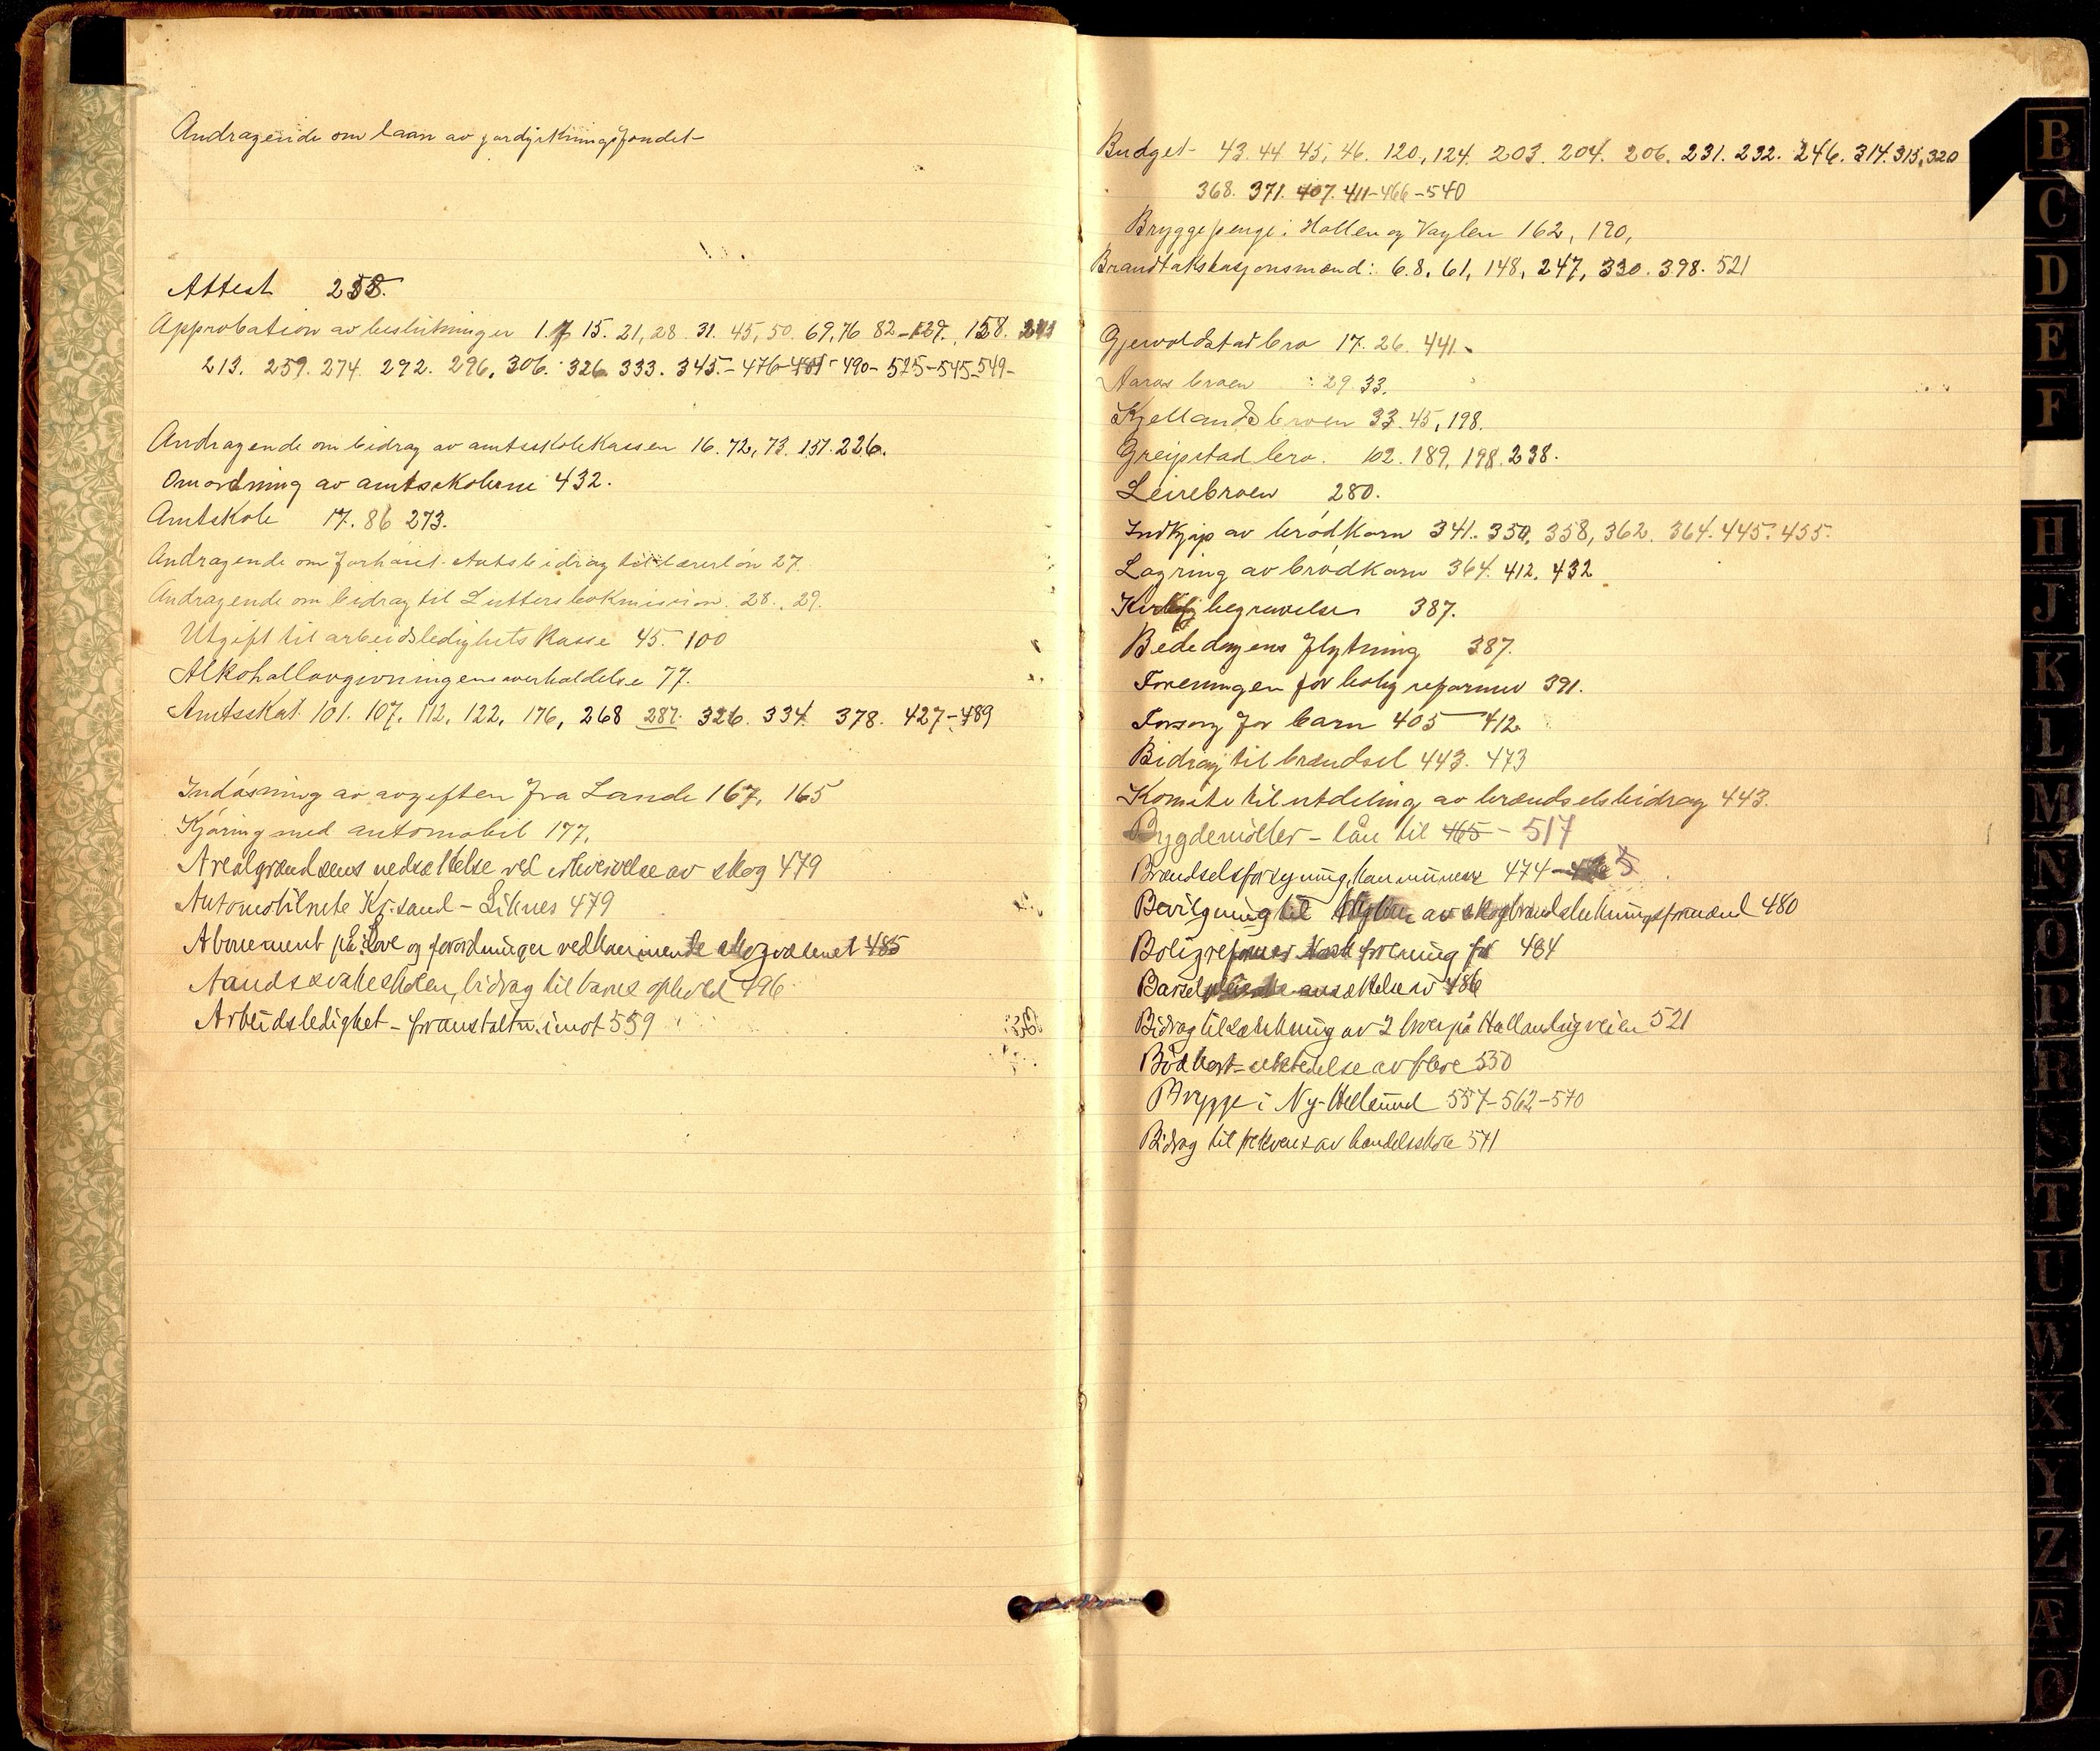 Andragende om laan av jordyrkningsfondet
Attest 258.
Approbation av beslutninger 1. 7 15. 21, 28. 31. 45, 50. 69, 76 82 - 129. 158.
213. 259. 274. 292. 296. 306. 326. 333. 345. - 476 - 490 - 525 - 545 - 549 -
Andragende om bidrag av amtsskolekassen 16. 72, 73. 151. 226.
Omordning av amtsskolerne 432.
Amtskole 17. 86 273.
Andragende om forhøiet Amtsbidrag til lærerløn 27.
Andragende om bidrag til Luthers bokmission. 28., 29.
Utgift til arbeidsledighets kasse 45. 100
Alkohollovgivningens overholdelse 77.
Amtsskat. 101. 107. 112. 122, 176, 268 287. 326. 334. 378. 427 - 489
Indløsning av avgiften fra Lande 167, 165
Kjøring med automobil 177.
Arealgrændsens nedsættelse ved erhvervelse av skog 479
Automobilrute Kr.sand - Liknes 479
Abonement på love og forordninger vedkommende skogvæsenet 485
Aandssvakeskolen, bidrag til barns ophold 496
Arbeidsledighet - foranstaltn. imot 559
B
C
D
E
F
H
J
K
L
M
N
O
P
R
S
T
U
W
X
Y
Z
Æ
Ø
Budget 43. 44 45, 46. 120, 124. 203. 204. 206. 231. 232. 246. 314. 315, 320
368. 371. 407. 411 - 466 - 540
Bryggepenge i Hollen og Vaglen 162, 190,
Brandtakstasjonsmænd: 6. 8, 61, 148, 247, 330. 398. 521
Gjervoldstad bro 17. 26. 441.
Aaros broen 29. 33.
Kjellands broen 33. 45, 198.
Greipstad bro. 102. 189, 198. 238.
Leirebroen 280.
Indkjøp av brødkorn 341. 350, 358, 362. 364. 445. 455.
Lagring av brødkorn 364. 412. 432
begravelser 387.
Bededagens flytning 387.
Foreningen for bolig reformer 391.
Forsorg for barn 405 - 412.
Bidrag til brændsel 443. 473
Komite til utdeling av brændselsbidrag 443.
Bygdemøller - lån til 465 - 517
Brændselsforsyning, kommunens 474 - 5
Bevilgning til av skogbrandslukningsformænd 480
Boligreformer forening for 484
ansættelse av 486
Bidrag til sænkning av 2 broer på Hallandvigveien 521
Brødkort - utstedelse av flere 550
Brygge i Ny-Hellesund 557 - 562 - 570
Bidrag til frekvens av handelsskole 571